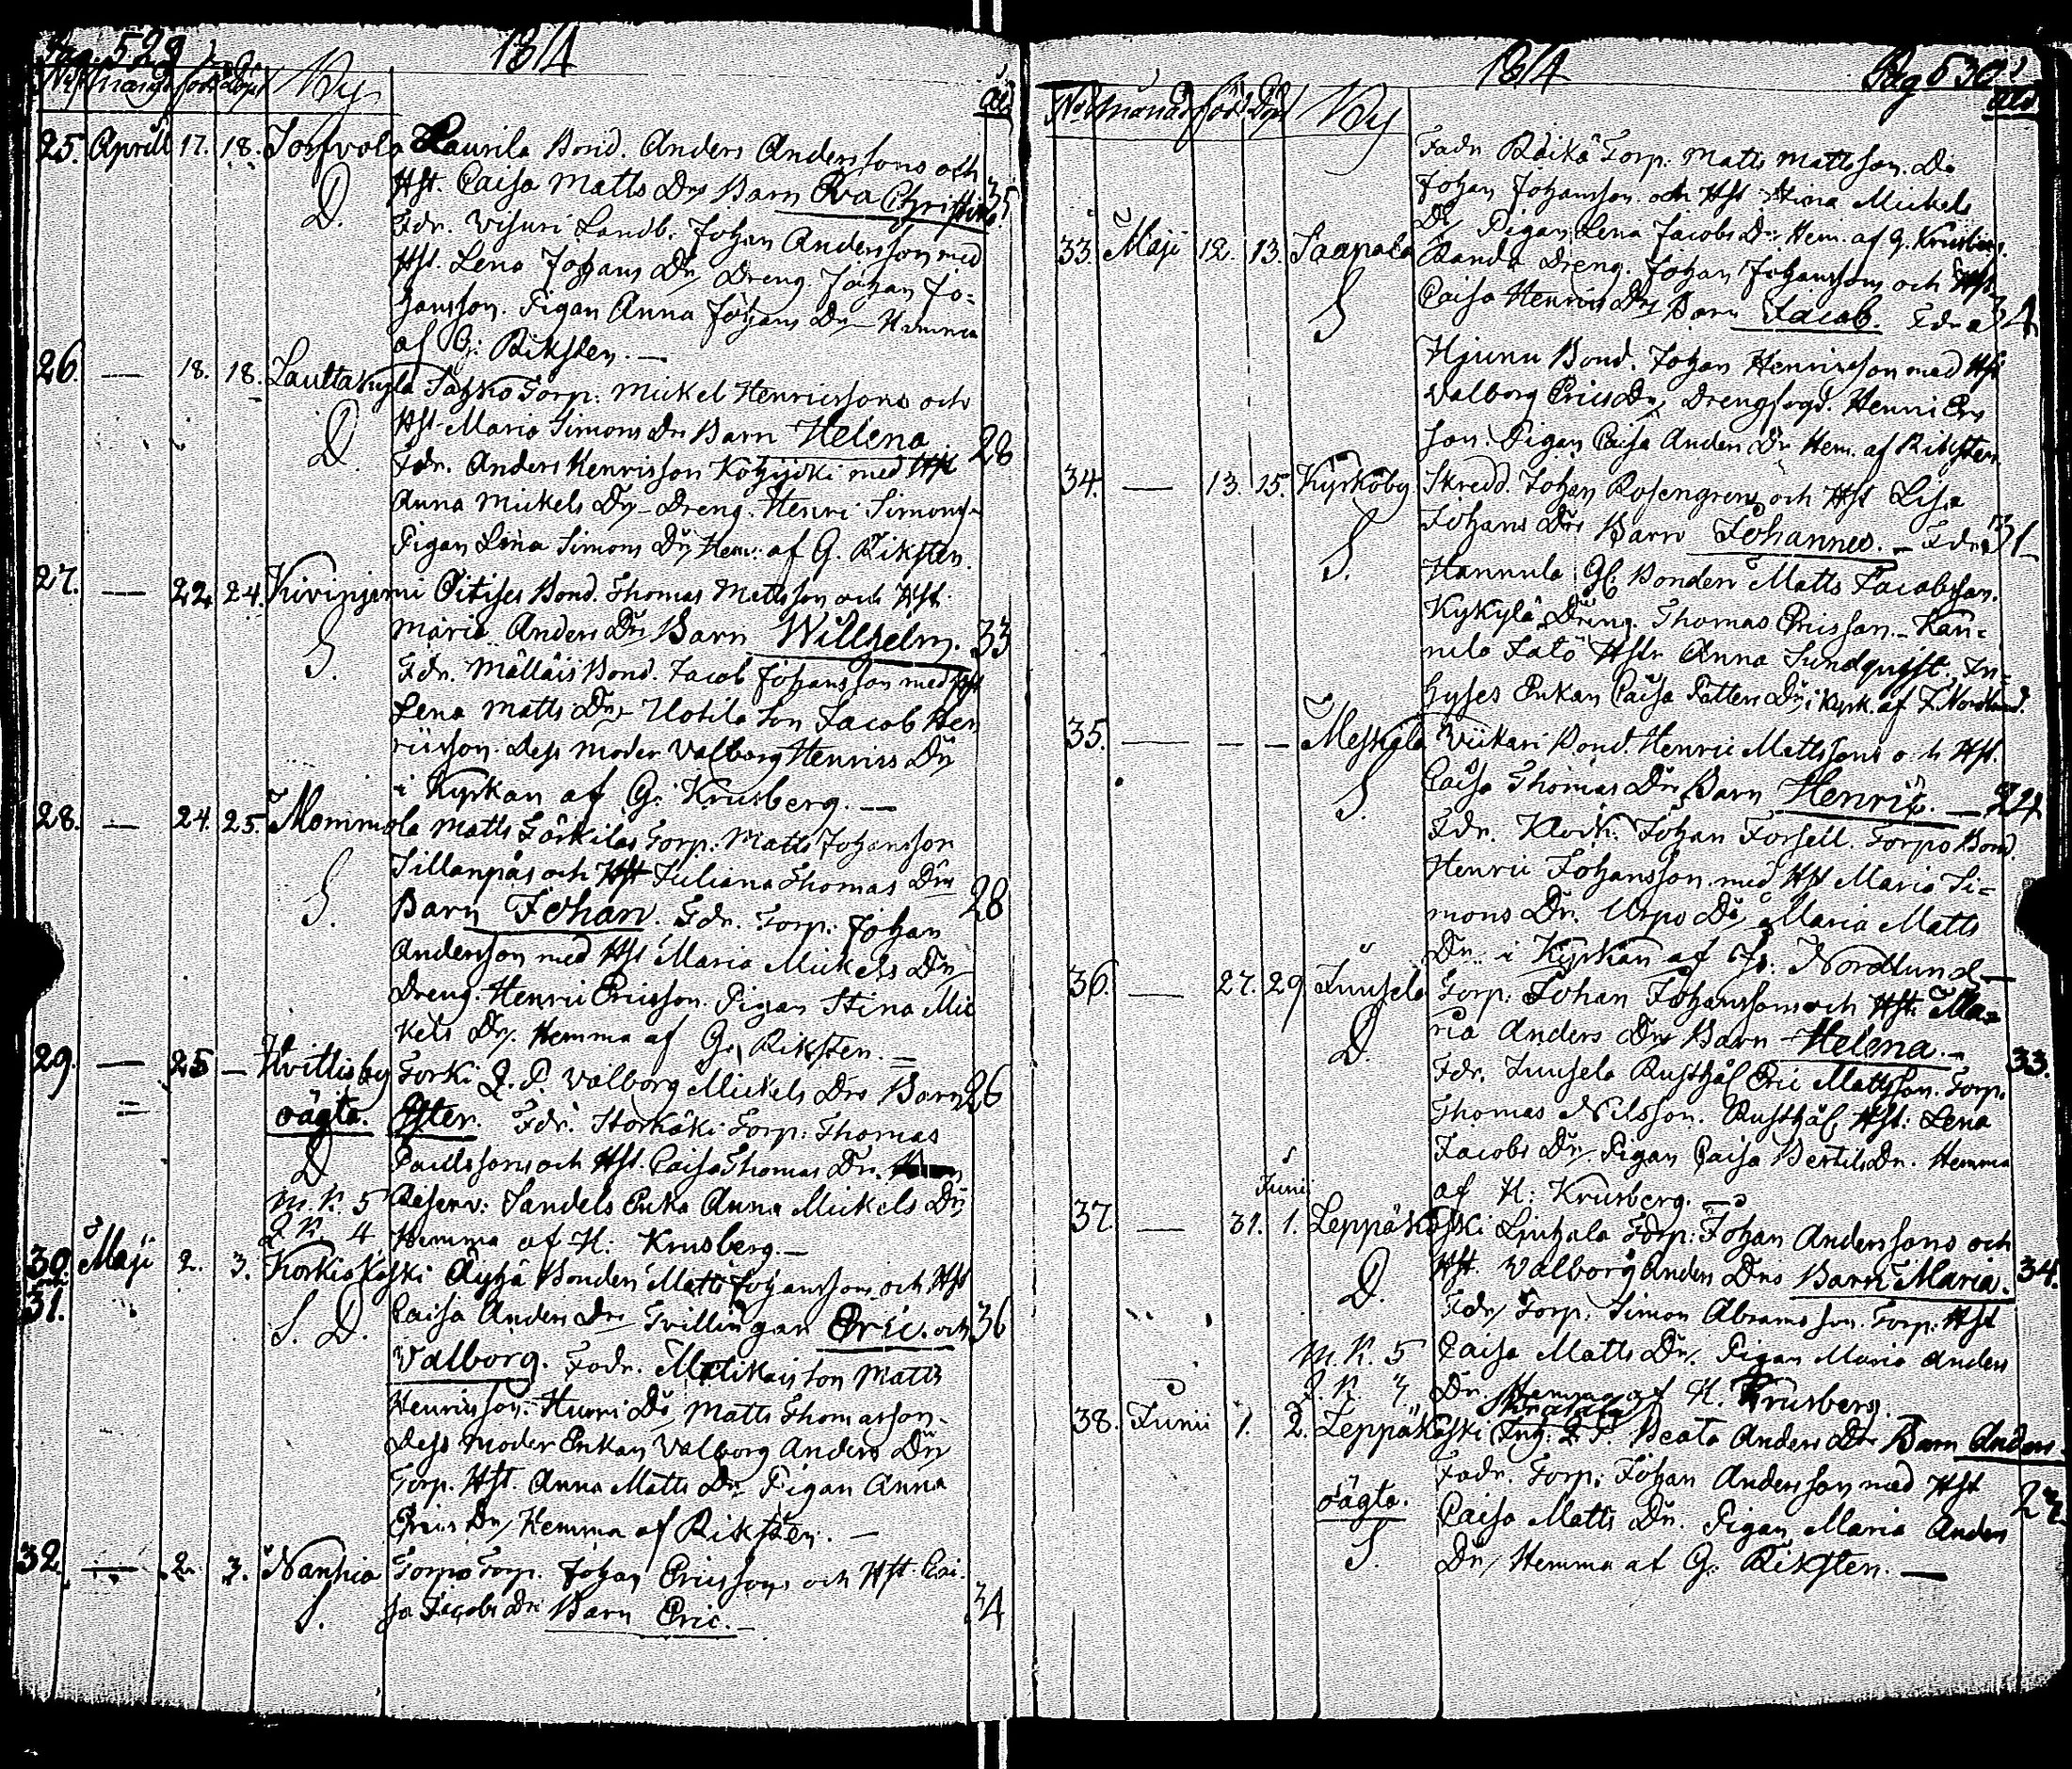 Pag. 529 1814
No Månad född Döpt By åld
25. Aprill 17. 18. Torfvola Laurila Bond. Anders Anderssons och
D. Hst. Caisa Matts Drs Barn Eva Christina 35
Fdr. Visuri Landb. Johan Andersson med
Hst. Lena Johans Dr, Dreng. Johan Jo=
hansson. Pigan Anna Johans Dr Hemma
af G: Riksten. —
26. — 18. 18. Lauttakylä Torp: Mickel Henricssons och
D. Hst. Maria Simons Drs Barn Helena 28
Fdr. Anders Henrisson med Hst
Anna Mickels Dr Dreng. Henri Simonss.
Pigan Lena Simons Dr Hem: af G. Riksten.
27. — 22. 24. Kivinjemi Bond. Thomas Mattsson och Hst
S. Maria Anders Drs Barn Willhelm. 33
Fdr. Mälläis Bond. Jacob Johansson med Hst
Lena Matts Dr Uotila Son Jacob Hen
ricsson. Dess moder Valborg Henrics Dr
i Kyrkan af G: Krusberg. —
28. — 24. 25. Mommola Matts Torp: Matts Johansson
Sillanpää och Hst Juliana Thomas Drs
S. Barn Johan. Fdr. Torp: Johan 28
Andersson med Hst Maria Mickels Dr
Dreng. Henric Ericsson. Pigan Stina Mic
kels Dr. Hemma af G. Riksten. =
29. — 25 — Hvittisby Torki Q. P. Valborg Mickels Drs Barn 26
= oägta. Ester. Fdr. Torp: Thomas
D Paulssons och Hst. Caisa Thomas Dr.
M. K. 5 Reserv: Sandels Enka Anna Mickels Dr
Q. K. 4 Hemma af H: Krusberg. —
30. Maji 2. 3. Korkiakoski Äyhä Bonden Matts Johanssons och Hst
och
31. S. D. Caisa Anders Drs Tvillingar Eric. och 36
Valborg. Fadr. Matikais Son Matts
Henricsson. Hurri Do Matts Thomasson.
Dess moder Enkan Valborg Anders Dr
Torp. Hst. Anna Matts Dr Pigan Anna
Erics Dr, Hemma af Riksten. —
32. — 2. 3. Nanhia Torpo Torp. Johan Ericssons och Hst Cai.
S. sa Jacobs Drs Barn Eric. — 34
1814 Pag 530
No Månad född Döpt By åld
Fadr. Räikä Torp: Matts Mattsson. Do
Johan Johansson och Hst Stina Mickels
Dr, Pigan Lena Jacobs Dr Hem. af G. Krusberg.
33. Maji 12. 13. Saapala Randa Dreng. Johan Johanssons och Hst
S Caisa Henrics Drs Barn Jacob. Fdr. 34
Hjunu Bond. Johan Henricsson med Hst
Valborg Erics Dr, Drengfogd. Henri Ers
son. Pigan Caisa Anders Dr Hem. af Riksten.
34. — 13. 15. Kyrkoby Skredd. Johan Rosengrens och Hst Lisa
S. Johans Drs Barn Johannes. — Fdr. 31
Hannula Gl. Bonden Matts Jacobsson.
Kykylä Dreng. Thomas Ericsson. — Kan=
nila Anna Sundquist. In=
hyses Enkan Caisa Dr i Kyrk. af F. Nordlund.
35. — — — Meskala Viikari Bond. Henric Mattssons och Hst.
S. Caisa Thomas Drs Barn Henric. — 24
Fdr. Klock: Johan Forsell. Torpo Bond.
Henric Johansson med Hst Maria Si=
mons Dr. Urpo Do Maria Matts
Dr. i Kyrkan af Nordlund —
36. — 27. 29 Juusela Torp: Johan Johanssons och Hst: Ma=
D. ria Anders Drs Barn Helena. — 33.
Fdr. Juusela Rusthål Eric Mattsson. Torp.
Thomas Nilsson. Rusthål. Hst: Lena
Jacobs Dr, Pigan Caisa Bertils Dr. Hemma
af H: Krusberg. —
Junii
37. — 31. 1. Leppäkoski Torp: Johan Anderssons och
D. Hst. Valborg Anders Drs Barn Maria. 34.
Fdr, Torp: Simon Abramsson. Torp: Hst
M. K. 5 Caisa Matts Dr, Pigan Maria Anders
Q. K. Dr. Hemma af H. Krusberg.
38. Junii 1. 2. Leppäkoski Inh. Q. P. Beata Anders Drs Barn Anders
Fadr. Torp: Johan Andersson med Hst
oägta. Caisa Matts Dr. Pigan Maria Anders
S. Dr, Hemma af G. Riksten. —